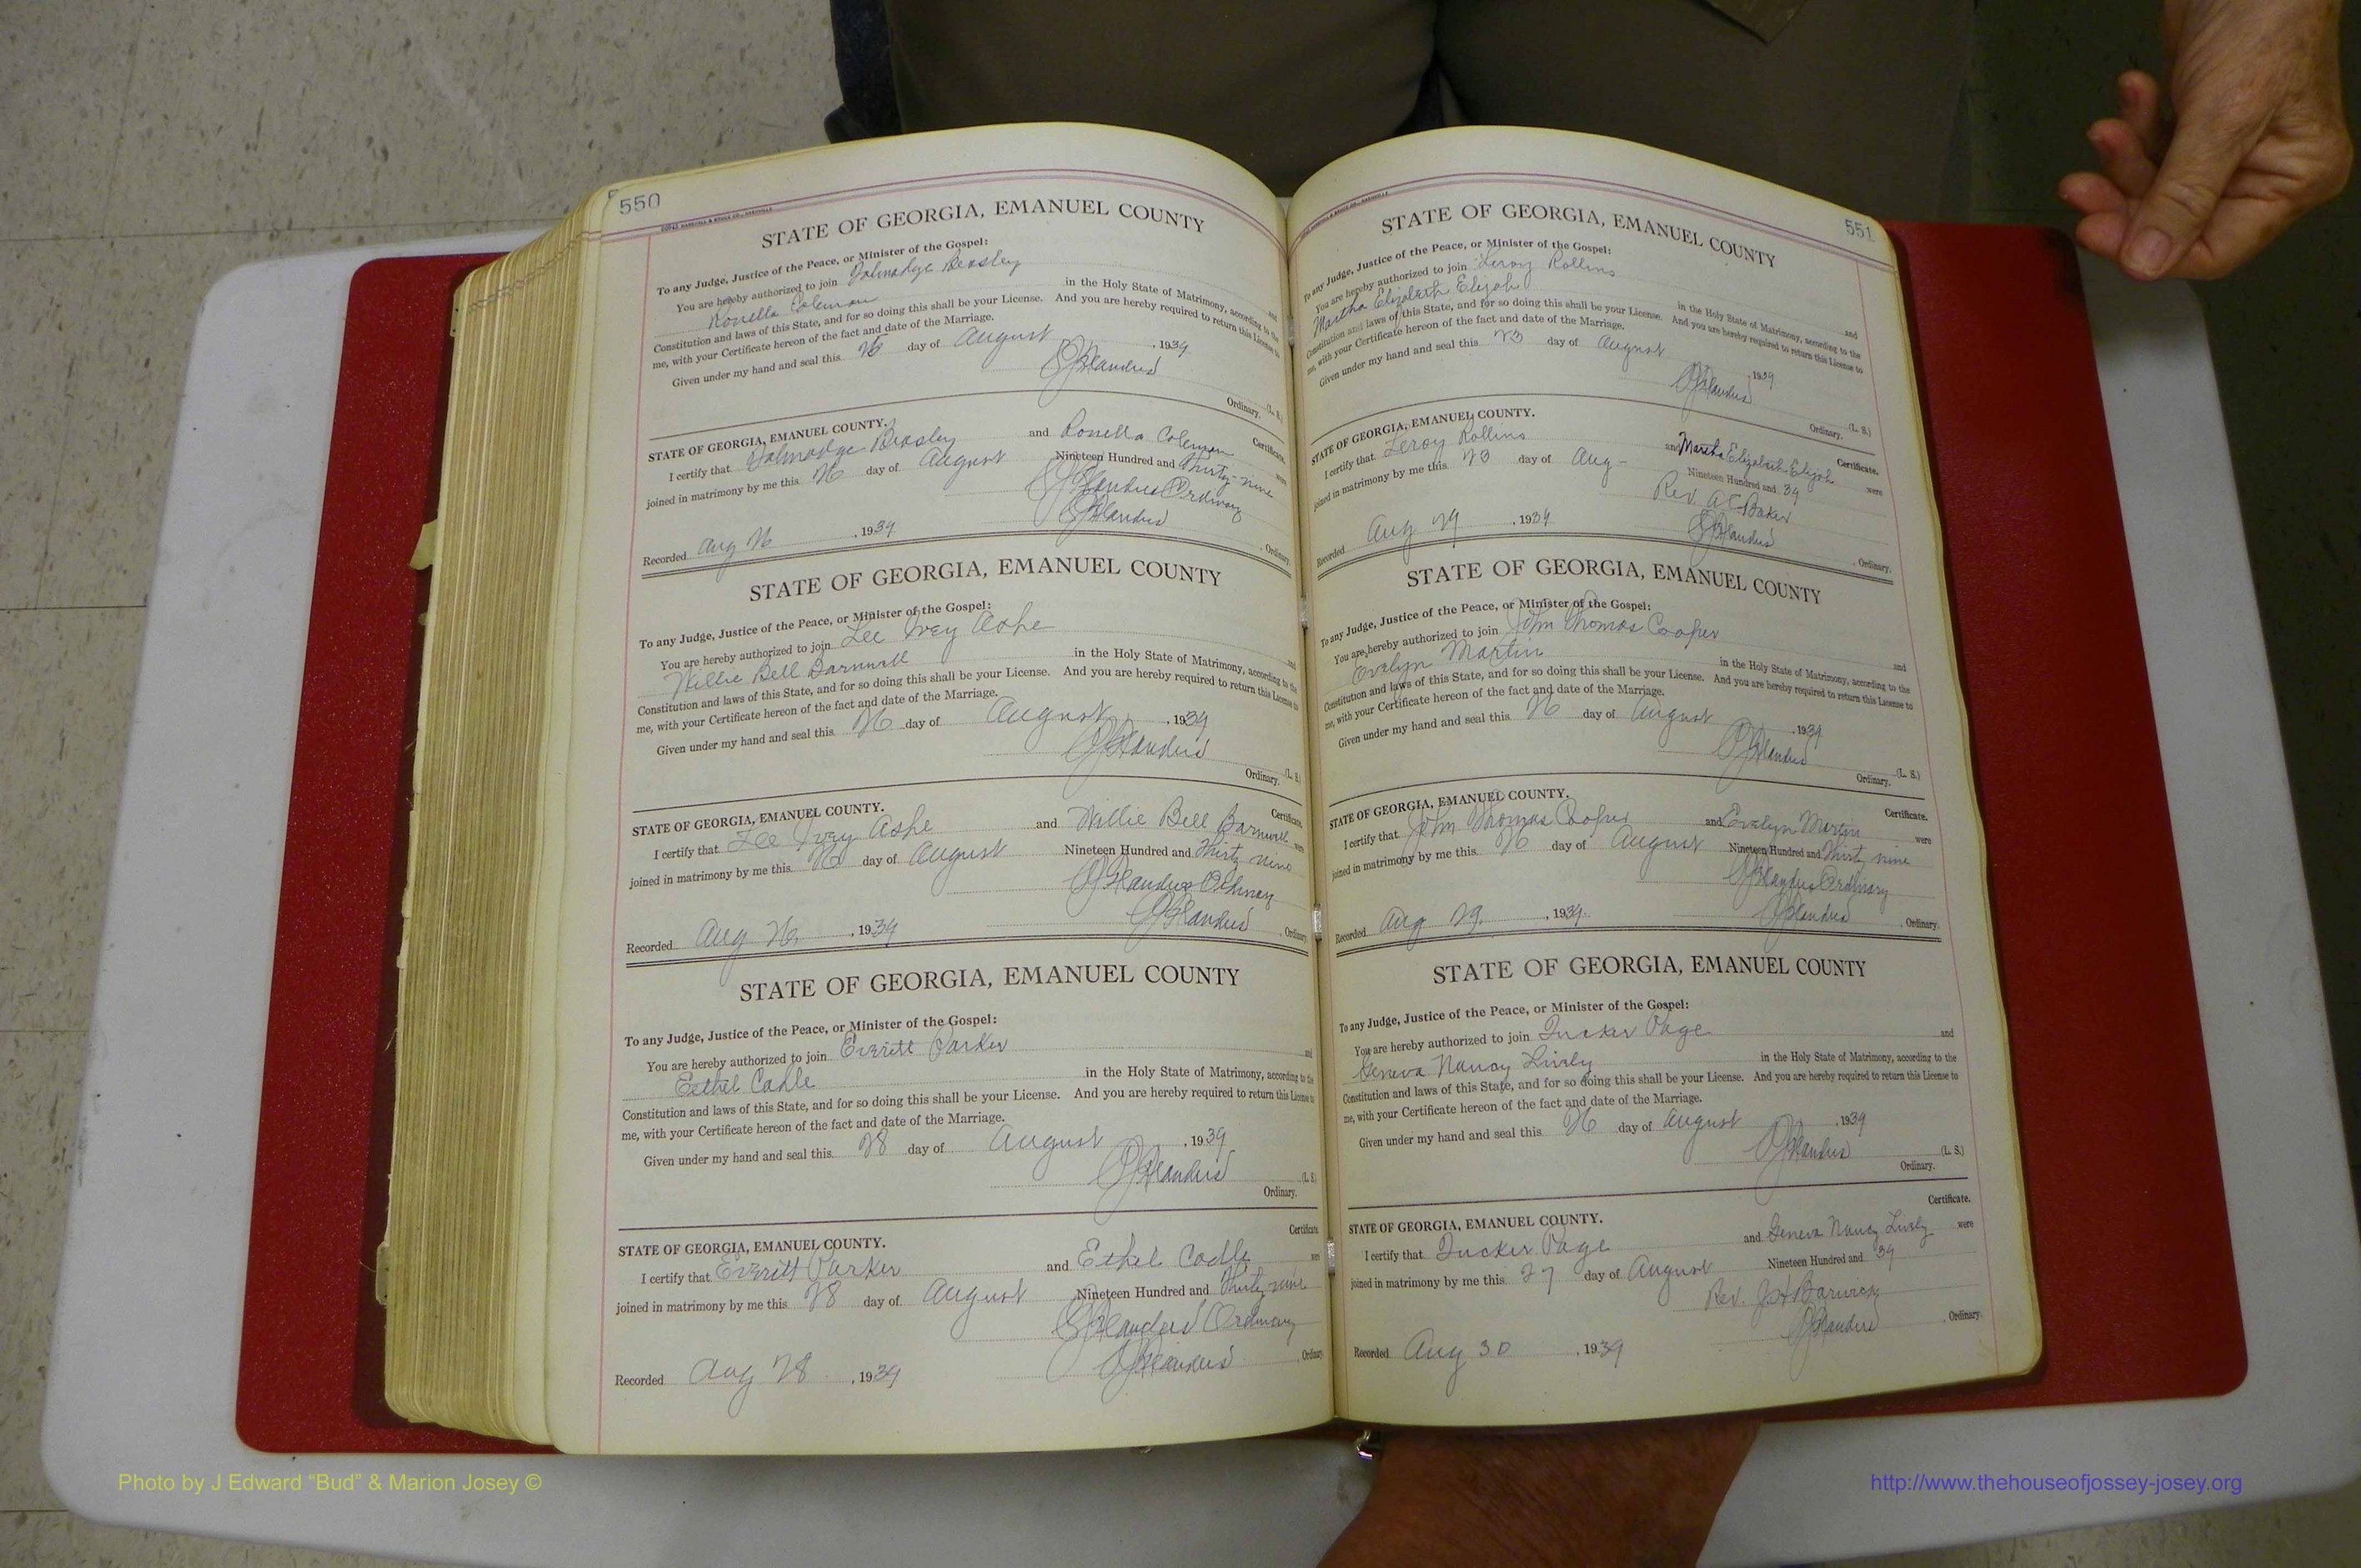 550
STATE OF GEORGIA, EMANUEL COUNTY
To any Judge, Justice of the Peace, or Minister of the Gospel:
You are hereby authorized to join Talmadge Beasley and
Ronella Coleman in the Holy State of Matrimony, according to the
Constitution and laws of this State, and for so doing this shall be your License. And you are hereby required to return this License to
me, with your Certificate hereon of the fact and date of the Marriage.
Given under my hand and seal this 26 day of August, 1939
(L. S.)
Ordinary.
STATE OF GEORGIA, EMANUEL COUNTY. Certificate.
I certify that Talmadge Beasley and Ronella Coleman were
joined in matrimony by me this 26 day of August Nineteen Hundred and thirty-nine
Ordinary
Recorded Aug 26, 1939 , Ordinary.
STATE OF GEORGIA, EMANUEL COUNTY
To any Judge, Justice of the Peace, or Minister of the Gospel:
You are hereby authorized to join Lee Ivey Ashe and
Willie Bell Barnwell in the Holy State of Matrimony, according to the
Constitution and laws of this State, and for so doing this shall be your License. And you are hereby required to return this License to
me, with your Certificate hereon of the fact and date of the Marriage.
Given under my hand and seal this 26 day of August, 1939
(L. S.)
Ordinary.
STATE OF GEORGIA, EMANUEL COUNTY. Certificate.
I certify that Lee Ivey Ashe and Willie Bell Barnwell were
joined in matrimony by me this 26 day of August Nineteen Hundred and Thirty nine
Ordinary
Recorded Aug 26, 1939 , Ordinary.
STATE OF GEORGIA, EMANUEL COUNTY
To any Judge, Justice of the Peace, or Minister of the Gospel:
You are hereby authorized to join Everitt Parker and
Eethel Cadle in the Holy State of Matrimony, according to the
Constitution and laws of this State, and for so doing this shall be your License. And you are hereby required to return this License to
me, with your Certificate hereon of the fact and date of the Marriage.
Given under my hand and seal this 28 day of August, 1939
(L. S.)
Ordinary.
Certificate
STATE OF GEORGIA, EMANUEL COUNTY.
I certify that Everitt Parker and Ethel Cadle were
joined in matrimony by me this 28 day of August Nineteen Hundred and Thirty nine
Ordinary
Recorded Aug 28, 1939 , Ordinary
551
STATE OF GEORGIA, EMANUEL COUNTY
To any Judge, Justice of the Peace, or Minister of the Gospel:
You are hereby authorized to join Leroy Rollins and
Martha Elizabeth Elijah in the Holy State of Matrimony, according to the
Constitution and laws of this State, and for so doing this shall be your License. And you are hereby required to return this License to
me, with your Certificate hereon of the fact and date of the Marriage.
Given under my hand and seal this 23 day of August, 1939
(L. S.)
Ordinary.
STATE OF GEORGIA, EMANUEL COUNTY. Certificate.
I certify that Leroy Rollins and Martha Elizabeth Elijah were
joined in matrimony by me this 23 day of Aug - Nineteen Hundred and 39
Rev. A C Baker
Recorded Aug 29, 1939 , Ordinary.
STATE OF GEORGIA, EMANUEL COUNTY
To any Judge, Justice of the Peace, or Minister of the Gospel:
You are hereby authorized to join John Thomas Cooper and
Evelyn Martin in the Holy State of Matrimony, according to the
Constitution and laws of this State, and for so doing this shall be your License. And you are hereby required to return this License to
me, with your Certificate hereon of the fact and date of the Marriage.
Given under my hand and seal this 26 day of August, 1939
(L. S.)
Ordinary.
STATE OF GEORGIA, EMANUEL COUNTY. Certificate.
I certify that John Thomas Cooper and Evelyn Martin were
joined in matrimony by me this 26 day of August Nineteen Hundred and Thirty nine
Ordinary
Recorded Aug 29, 1939. , Ordinary.
STATE OF GEORGIA, EMANUEL COUNTY
To any Judge, Justice of the Peace, or Minister of the Gospel:
You are hereby authorized to join Tucker Page and
Geneva Nancy Lively in the Holy State of Matrimony, according to the
Constitution and laws of this State, and for so doing this shall be your License. And you are hereby required to return this License to
me, with your Certificate hereon of the fact and date of the Marriage.
Given under my hand and seal this 26 day of August, 1939
(L. S.)
Ordinary.
Certificate.
STATE OF GEORGIA, EMANUEL COUNTY.
I certify that Tucker Page and Geneva Nancy Lively were
joined in matrimony by me this 27 day of August Nineteen Hundred and 39
Rev. J H Barwick
Recorded Aug 30, 1939 , Ordinary.
Photo by J Edward “Bud” & Marion Josey ©
http://www.thehouseofjossey-josey.org